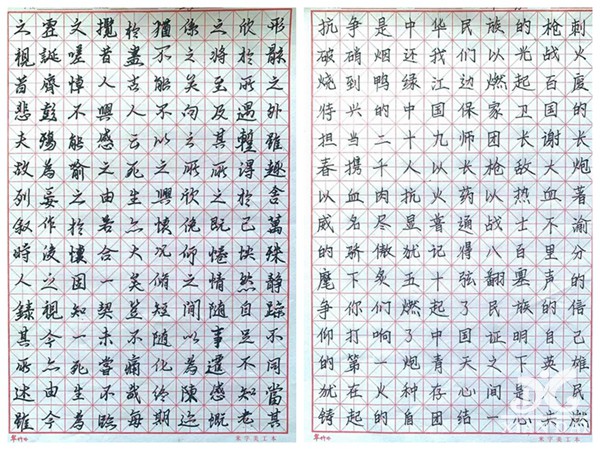 形骸之外雖趣舍萬殊静躁不同當其
欣於所遇暫得於己怏然自足不知老
之将至及其所之既惓情随事遷感慨
係之矣向之所欣俛仰之間以為陳迹
猶不能不以之興懷况脩短随化終期
於盡古人云死生亦大矣豈不痛哉每
攬昔人興感之由若合一契未甞不臨
文嗟悼不能喻之於懷固知一死生為
虛誕齊彭殤為妄作後之視今亦由今
之視昔悲夫故列叙時人録其所述雖
抗争是中华民族的枪刺
破硝烟还我们以光战火
烧到鸭绿江边燃起百废
待兴的中国保家卫国的
担当二十九师团长谢长
春携千人以长枪敌大炮
以血肉抗火药以热血著
威名尽显普通战士不渝
的骄傲犹记得八百里分
麾下炙五十弦翻塞声的
争你们燃起了民族的倍
仰打响了中国证明自己
的第一炮青天之下英雄
犹在火种存心间是人民
铸起的自团结一心共燃